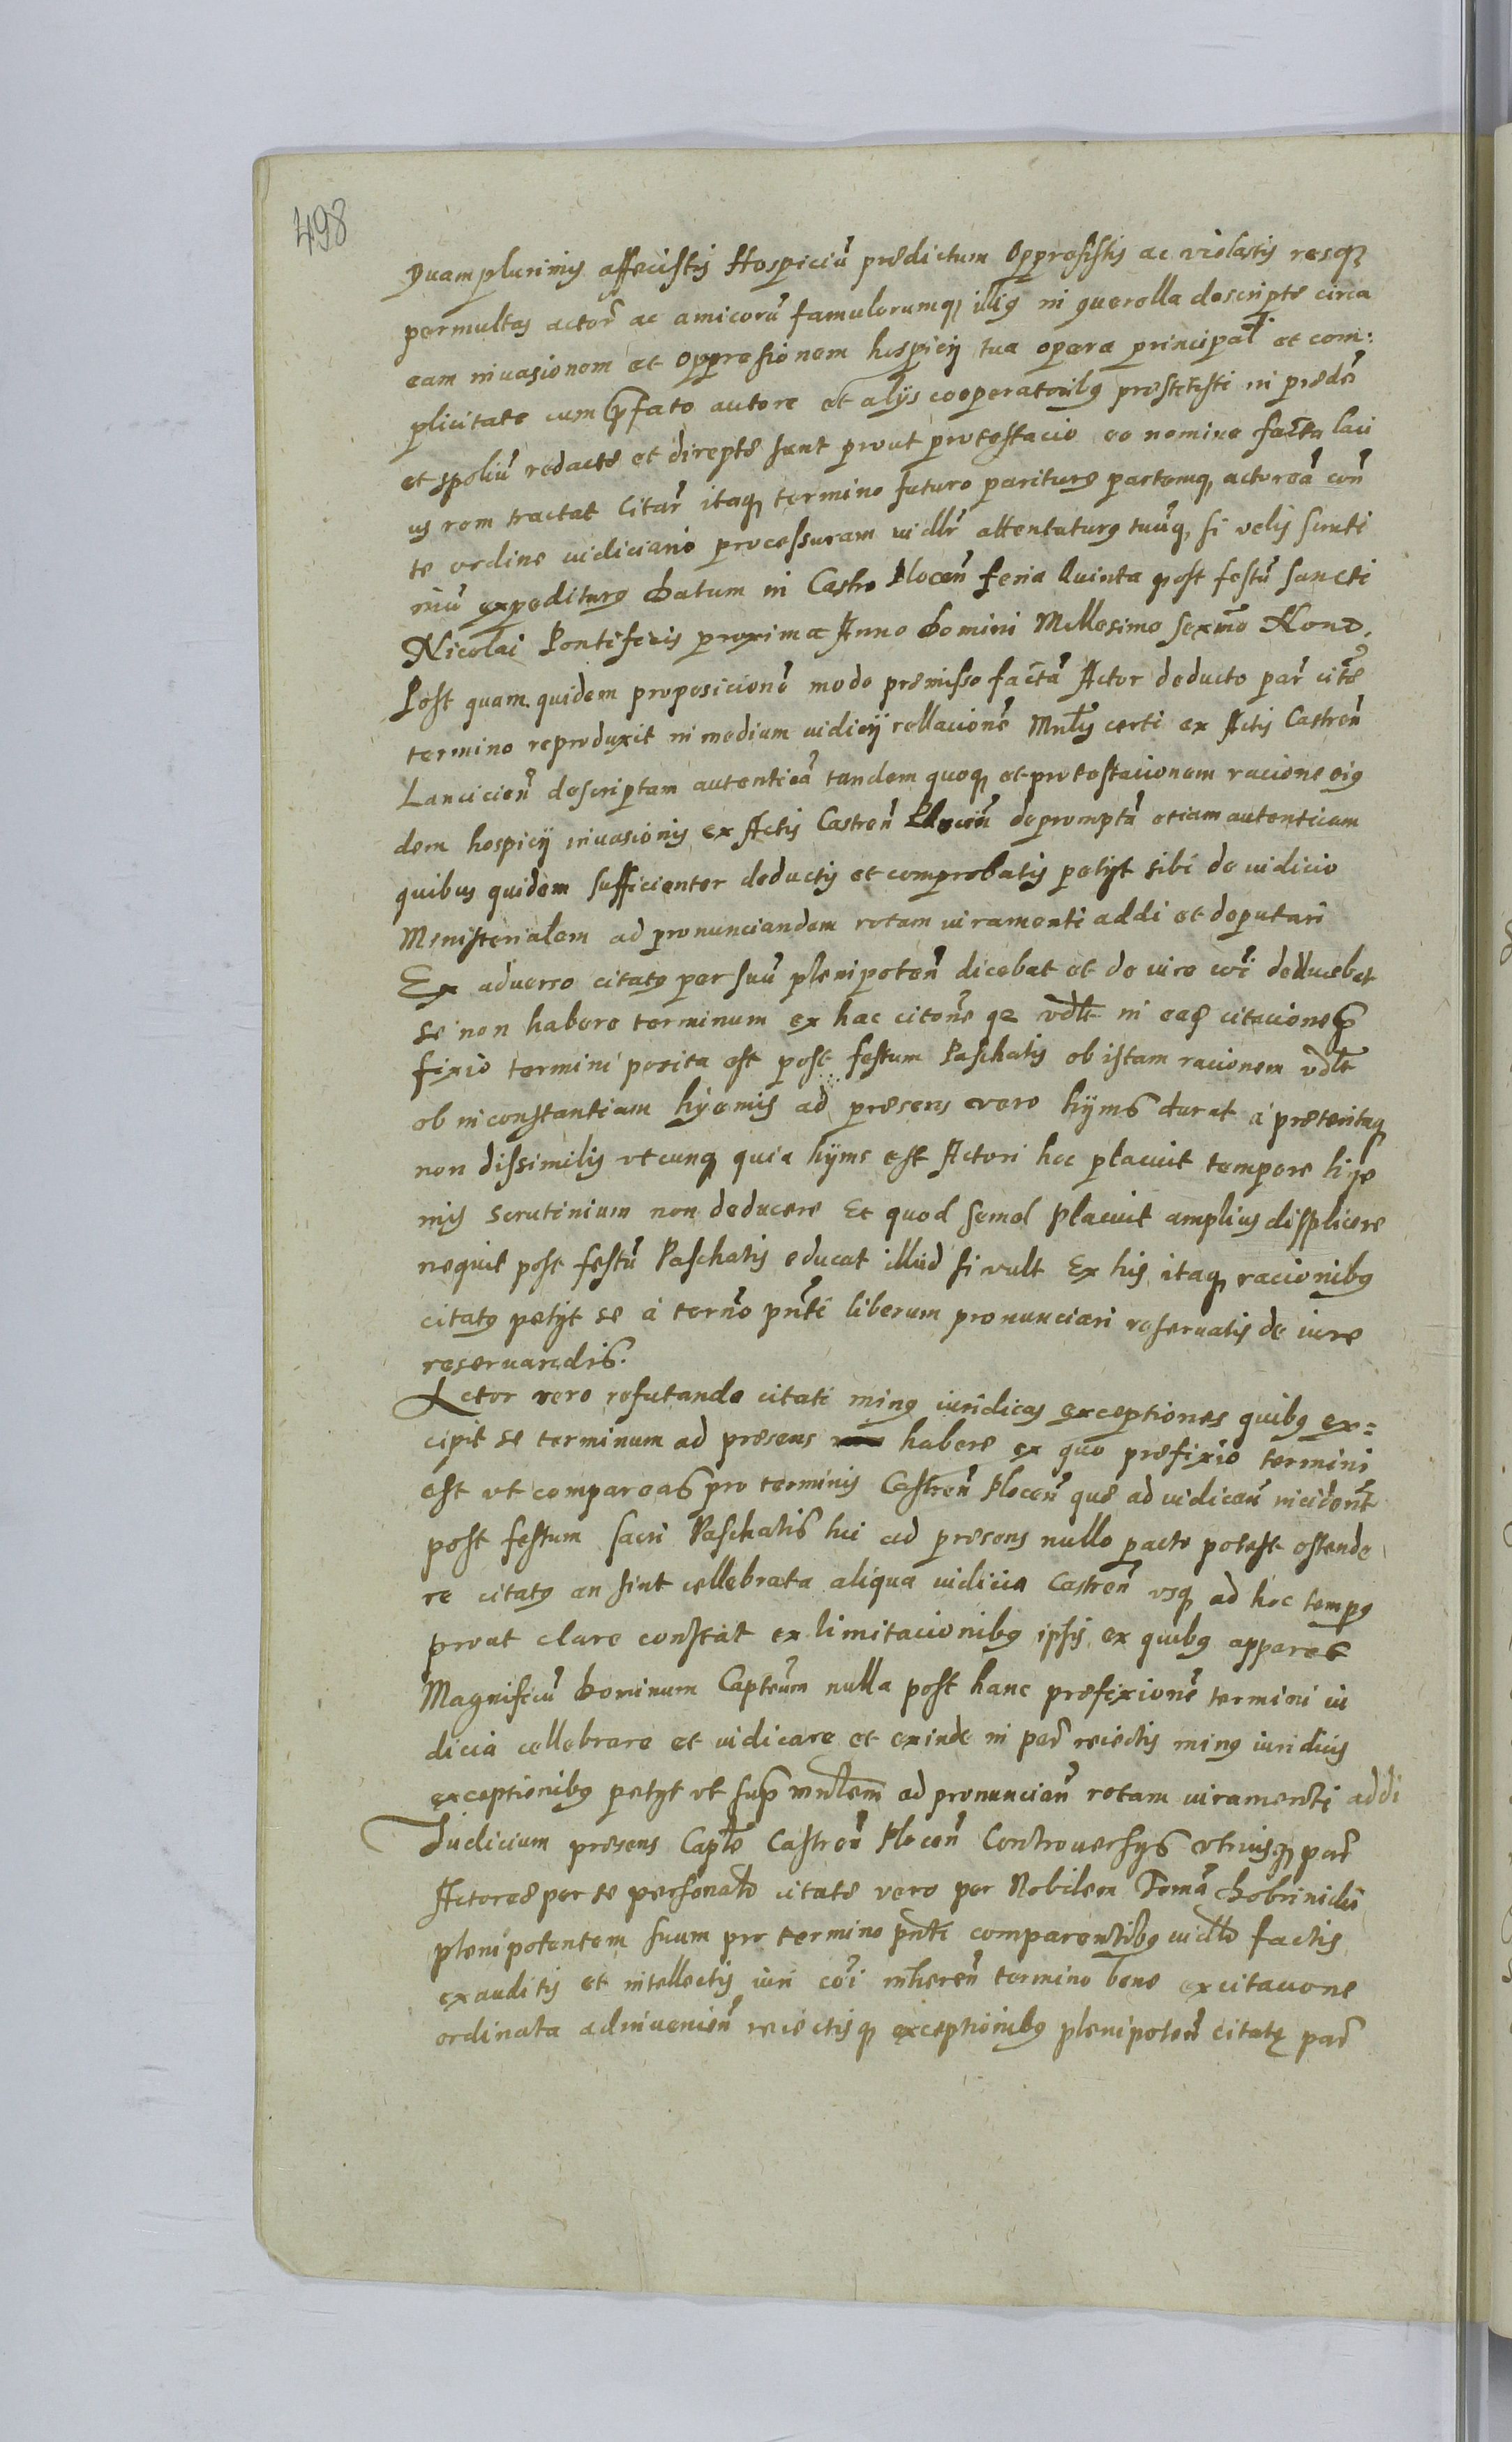 498
Quam plurimis affecistis Hospiciũ prædictum oppressistis ac violastis resq
permultas actor̃ ac amicorũ famulorumq illius in querella descriptæ circa
eam invasionem et oppressionem hospicij tua opera principali et com:
plicitate cum pfato autore et alijs cooperatoribus præstitisti in prædã
et spoliũ redactæ et direptæ sunt prout protestacio eo nomine facta laci
us rem tractat Citar̃ itaq termino futuro pariturus partemq actoreã con̄
te ordine iudiciario processuram vidlr̃ attentaturus tuũq si velis scruti
niũ expediturus Datum in Castro Plocen̄ feria Quinta post festũ Sancti
Nicolai Pontificis proxima Anno Domini Millesimo Sexmo Nono.
Post quam quidem proposicionẽ modo præmisso factã Actor deducto par̃ citæ
termino reproduxit in medium iudicij rellacionẽ Mnl̃is certi ex Actis Castren̄
Lancicien̄ descriptam autenticã tandem quoq et protestacionem racione eius
dem hospicij invasionis ex Actis Castren̄ Plocen̄ depromptã etiam autenticam
quibus quidem sufficienter deductis et comprobatis petijt sibi de iudicio
Ministerialem ad pronunciandam rotam iuramenti addi et deputari
Ex adverso citatus per suũ plenipoten̄ dicebat et de iure cõi deducebat
se non habere terminum ex hac citonẽ qa vdlt in eaq citacione p
fixio termini posita est post festum Paschatis ob istam racionem vdlt
ob inconstantiam hyemis ad præsens vero hijms durat à præteritaq
non dissimilis utcunq quia hijms est Actori hoc placuit tempore hije
mis scrutinium non deducere Et quod semel placuit amplius displicere
nequit post festũ Paschatis educat illud si vult Ex his itaq racionibus
citatus petijt se à termo pn̄ti liberum pronunciari reservatis de iure
reservandis.
Actor vero refutando citati minus iuridicas exceptiones quibus ex=
cipit se terminum ad præsens habere ex quo præfixio termini
est ut compareas pro terminis Castren̄ Plocen̄ quæ ad iudican̄ inciderit
post festum sacri Paschatis hic ad præsens nullo pacto potest ostende
re citatus an sint cellebrata aliqua iudicia Castren̄ usq ad hoc tempus
prout clare constat ex limitacionibus ipsis ex quibus apparet
Magnificũ Dominum Capteũm nulla post hanc præfixionẽ termini iu
dicia cellebrare et iudicare et exinde in par̃ reiectis minus iuridicis
exceptionibus petijt ut sup mnl̃em ad pronuncian̄ rotam iuramenti addi
Iudicium præsens Captle Castren̄ Plocen̄ Controversijs utriusq par̃
Actoreæ per se personalr̃ citatæ vero per Nobilem Tomã Dobrinicki
plenipotentem suum pro termino pn̄ti comparentibus vidlr̃ factis
exauditis et intellectis iuri cõi inheren̄ termino bene ex citatione
ordinata adinvenien̄ reiectisq exceptionibus plenipoten̄ citatę par̃